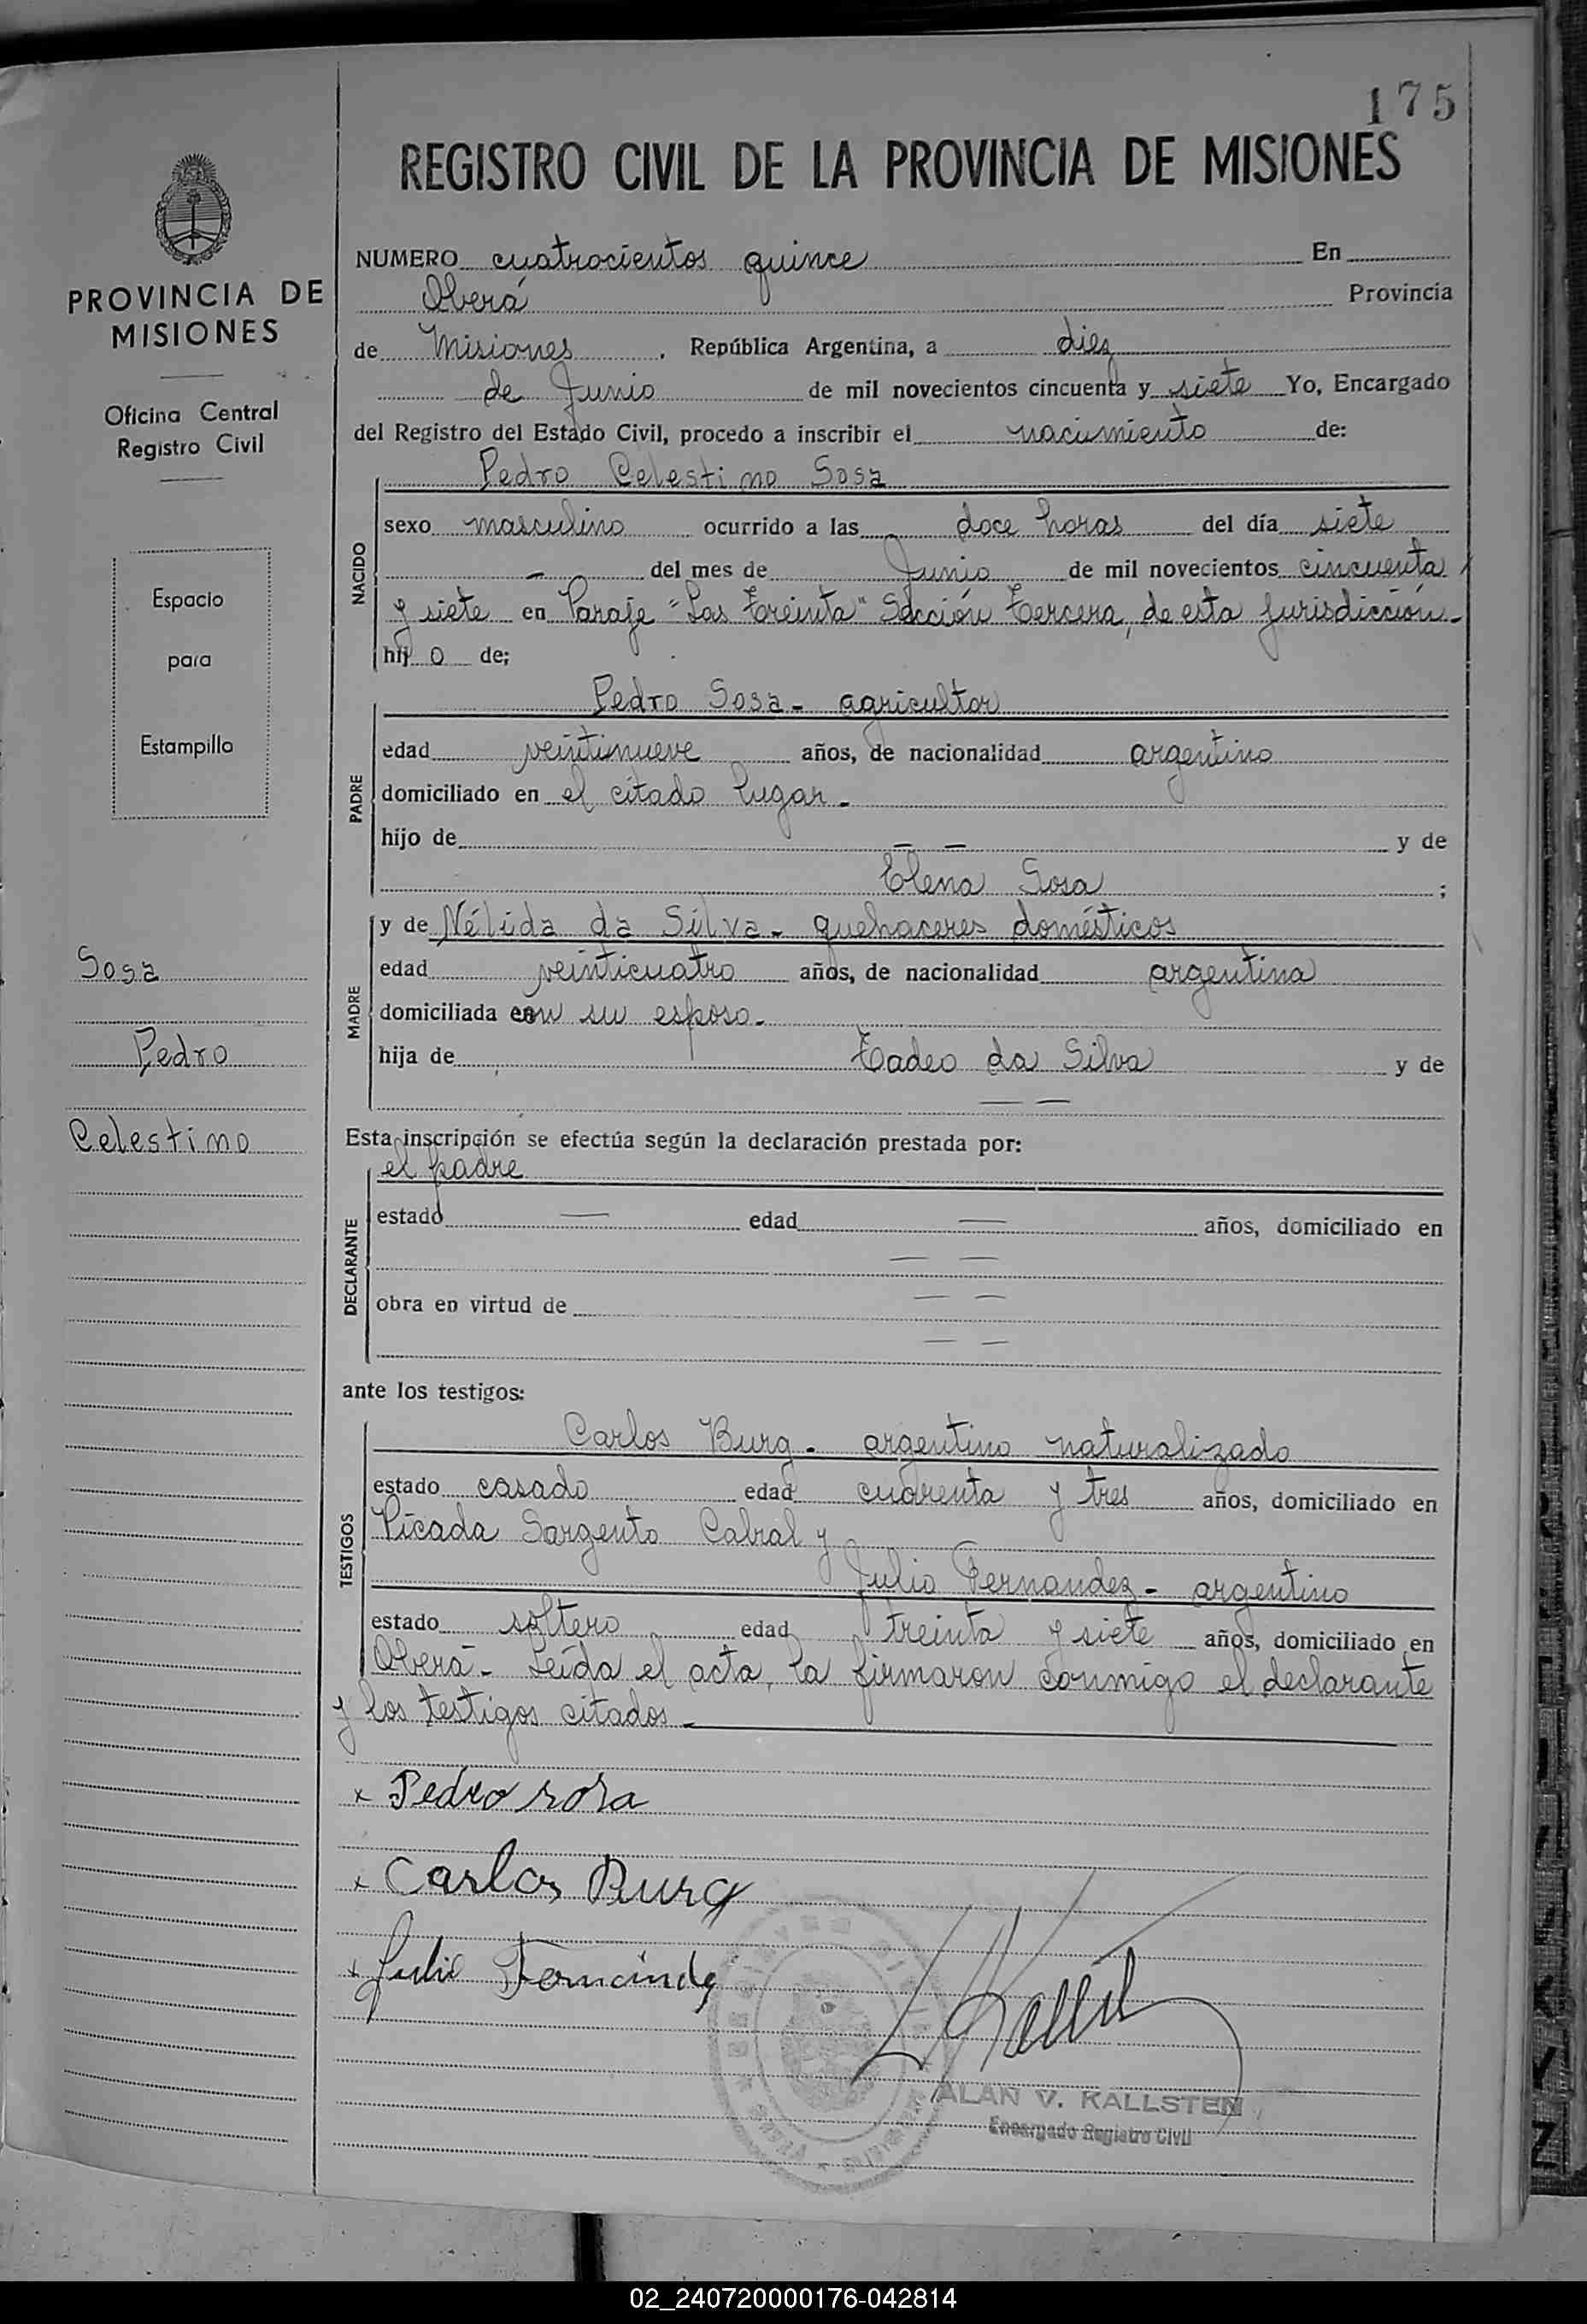 175
REGISTRO CIVIL DE LA PROVINCIA DE MISIONES
PROVINCIA DE
MISIONES
Oficina Central
Registro Civil
Espacio
para
Estampilla
Sosa
Pedro
Celestino
NUMERO cuatrocientos quince En
Oberá Provincia
de Misiones . República Argentina, a diez
de Junio de mil novecientos cincuenta y siete Yo, Encargado
del Registro del Estado Civil, procedo a inscribir el nacimiento de:
NACIDO
Pedro Celestino Sosa
sexo masculino ocurrido a las doce horas del día siete
– del mes de Junio de mil novecientos cincuenta
y siete en Paraje "Las Treinta" Sección Tercera, de esta jurisdicción.-
hijo de;
PADRE
Pedro Sosa - agricultor
edad veintinueve años, de nacionalidad argentino
domiciliado en el citado lugar.-
hijo de — — y de
Elena Sosa ;
MADRE
y de Nélida da Silva - quehaceres domésticos
edad veinticuatro años, de nacionalidad argentina
domiciliada con su esposo.-
hija de Tadeo da Silva y de
— —
Esta inscripción se efectúa según la declaración prestada por:
DECLARANTE
el padre
estado — edad — años, domiciliado en
— —
obra en virtud de — —
— —
ante los testigos:
TESTIGOS
Carlos Burg - argentino naturalizado
estado casado edad cuarenta y tres años, domiciliado en
Picada Sargento Cabral y
Julio Fernandez - argentino
estado soltero edad treinta y siete años, domiciliado en
Oberá - Leída el acta, la firmaron conmigo el declarante
y los testigos citados -
x Pedro sosa
x Carlos Burg
x Julio Fernández
ALAN V. KALLSTEN
Encargado Registro Civil
02_240720000176-042814